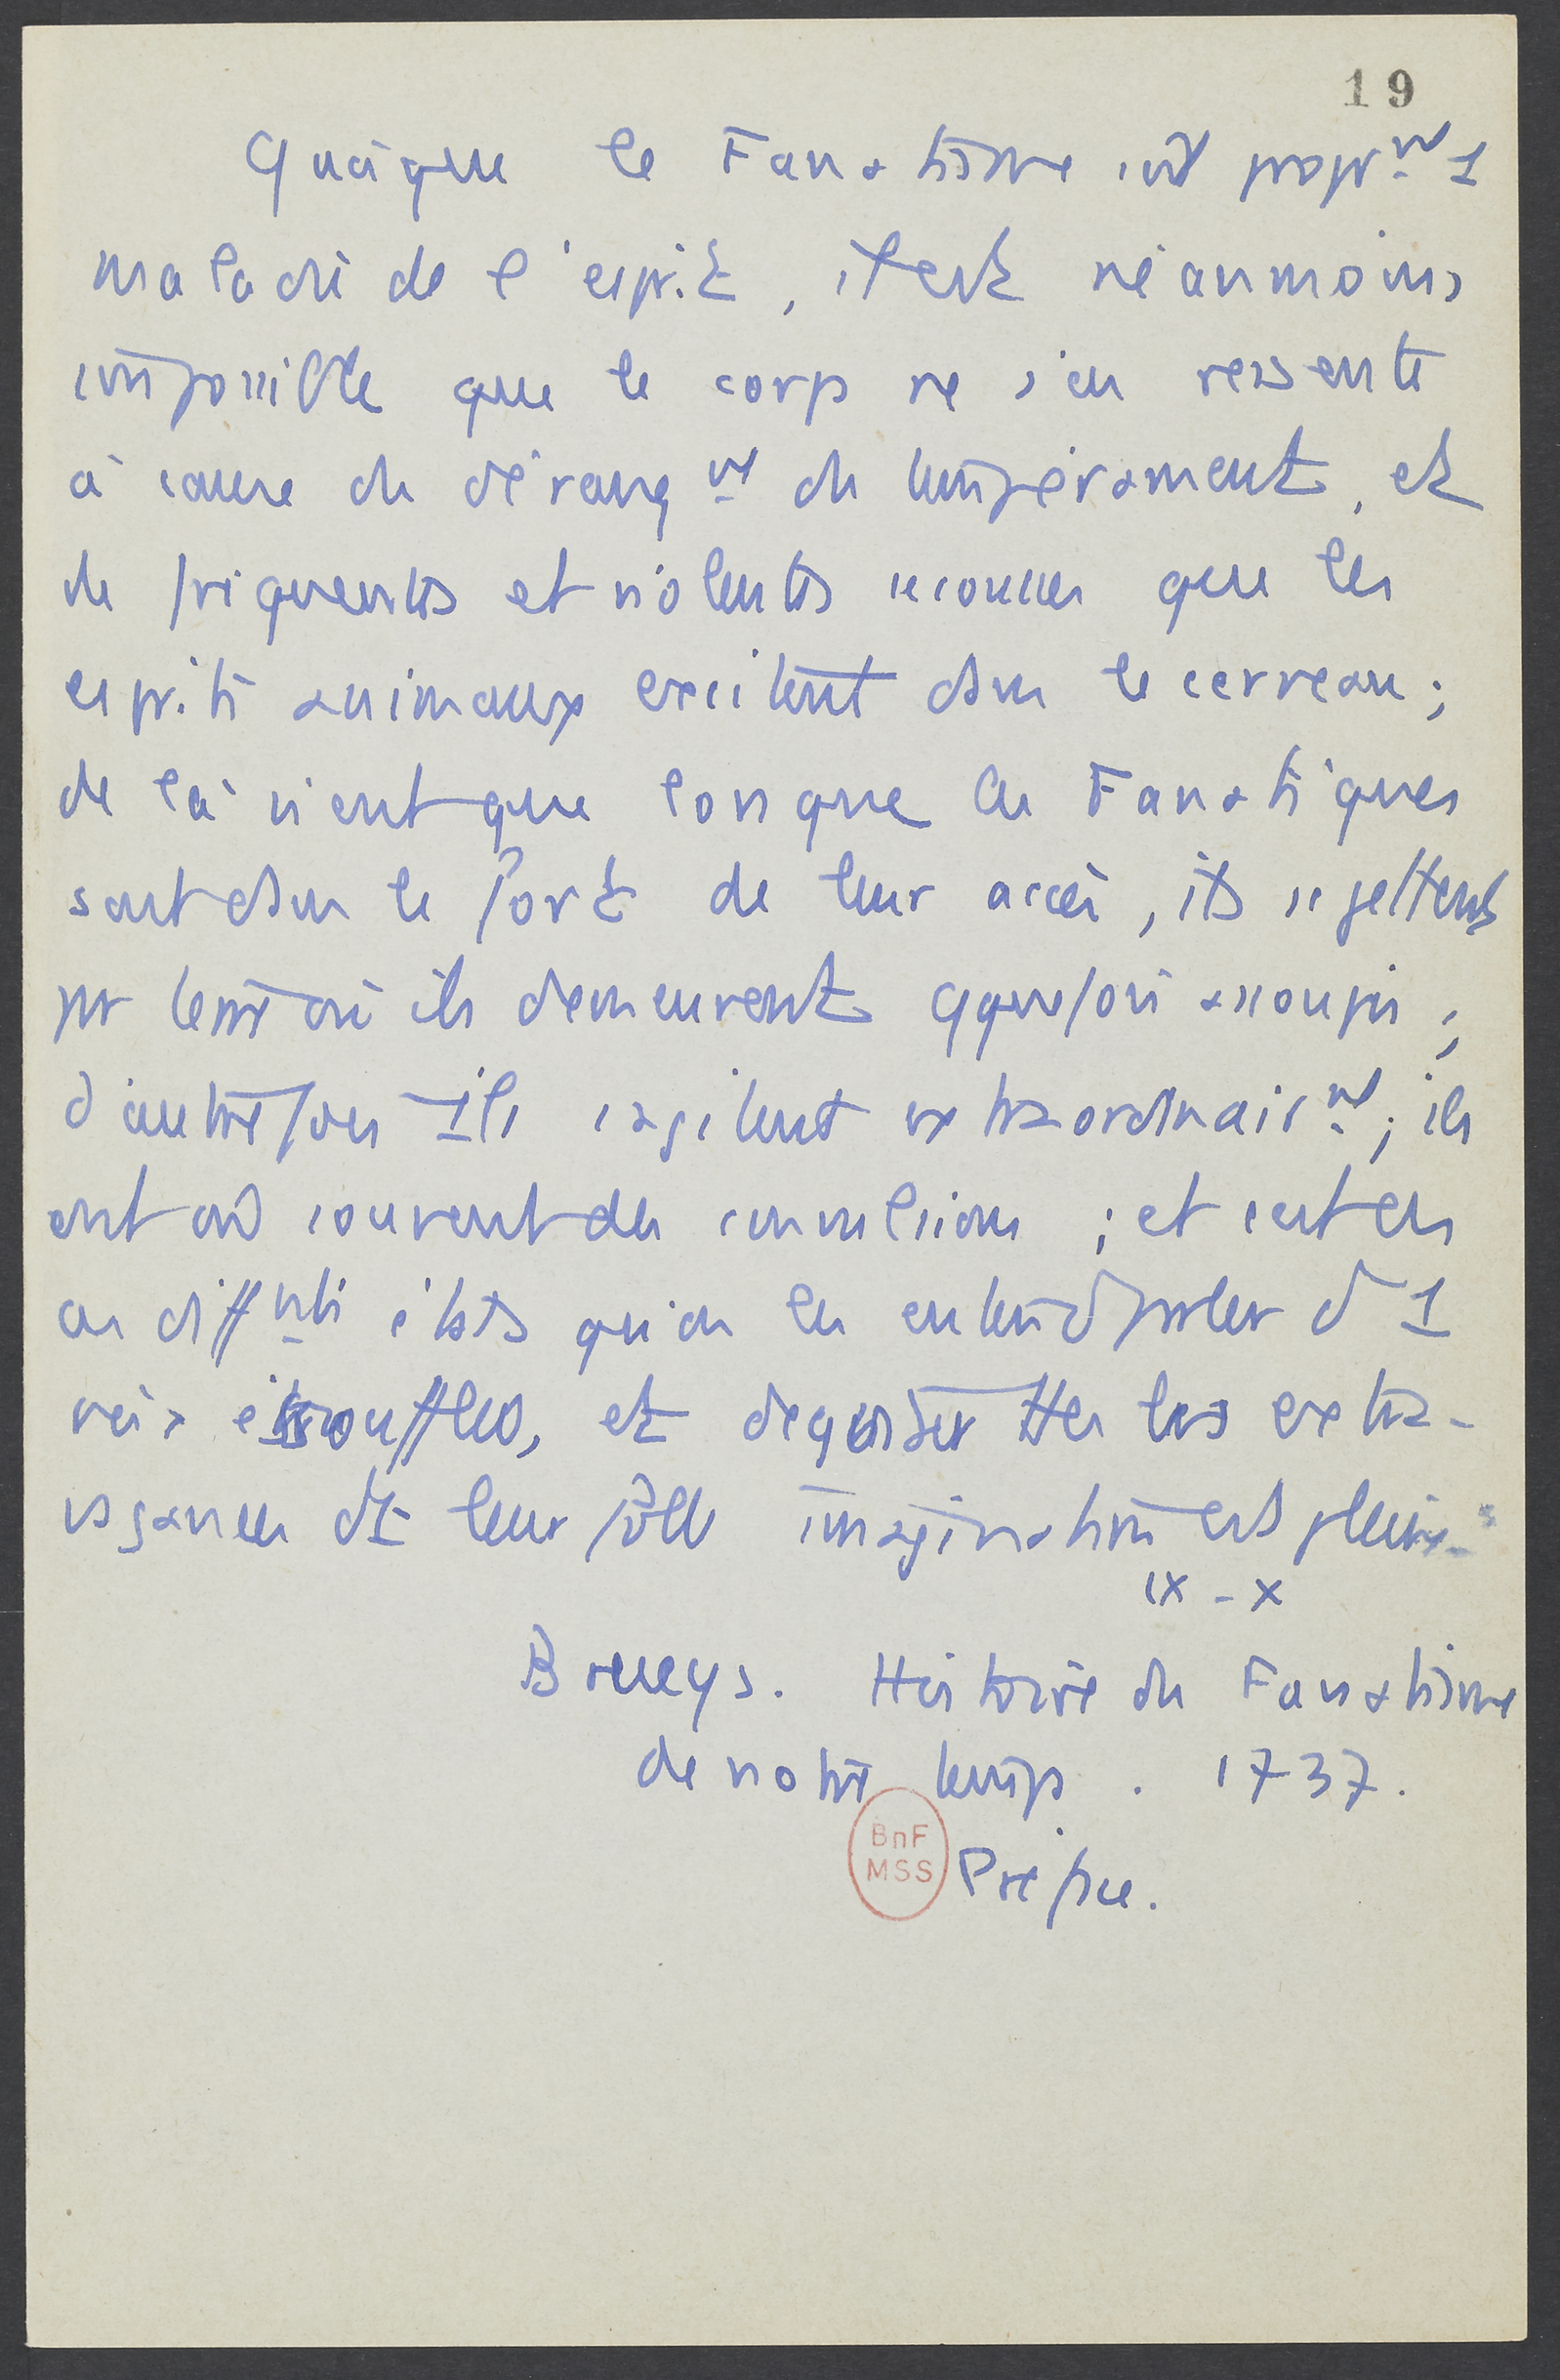 19
Quoique le Fanatisme soit proprmt 1
maladie de l'esprit, il est néanmoins
impossible que le corps ne s'en ressente
à cause du dérangmt du tempérament, et
de fréquentes et violentes secousses que les
esprits animaux excitent dans le cerveau ;
de là vient que lorsque les Fanatiques
sont dans le fort de leur accès, ils se jettent
par terre où ils demeurent qquefois assoupis ;
d'autres fois ils s'agitent extraordinairmt ; ils
ont souvent des convulsions ; et c'est en
ces diffnts états qu'on les entend parler d'1
voix étouffée, et degoiser ttes les extra-
vagances dt leur folle imagination est pleine
IX - X
Brueys. Histoire du Fanatisme
de notre temps. 1737.
BnF
MSS
Préface.